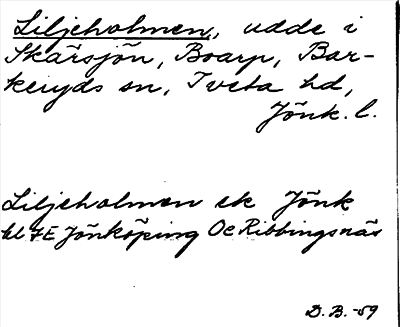 Liljeholmen, udde i
Skärsjön, Boarp, Bar-
keryds sn, Tveta hd,
Jönk. l.
Liljeholmen ek Jönk
bl 7E Jönköping Oc Ribbingsnäs
D. B. -59